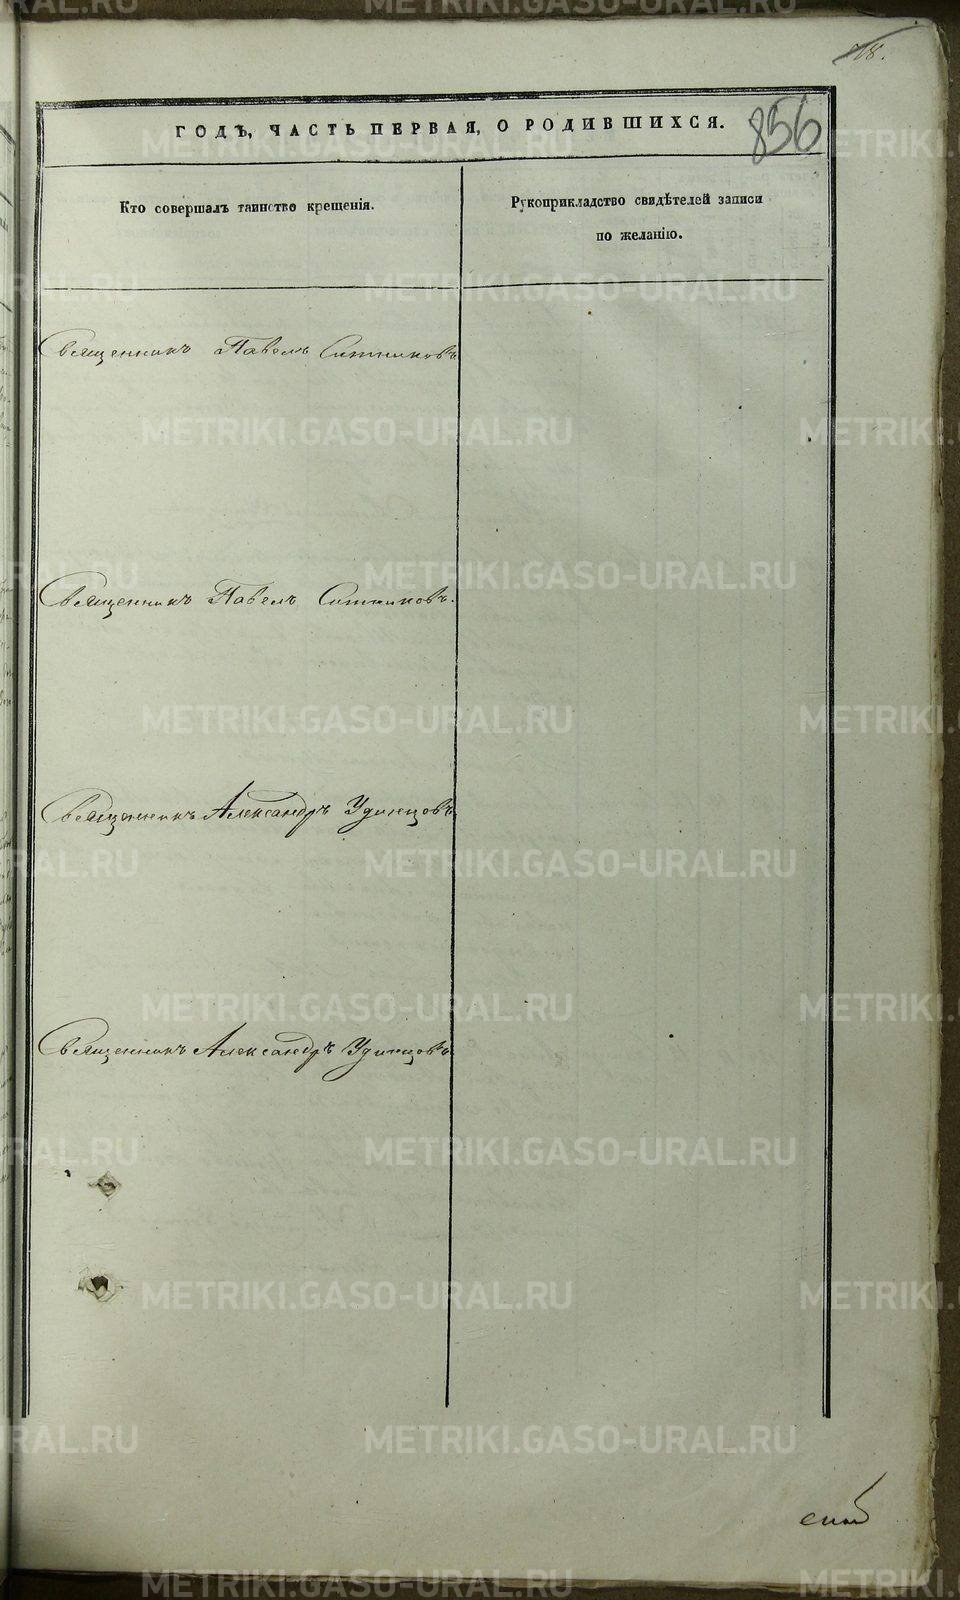 78.
856
ГОДЪ, ЧАСТЬ ПЕРВАЯ, О РОДИВШИХСЯ.
Кто совершалъ таинство крещенія.
Рукоприкладство свидѣтелей записи
по желанію.
Священникъ Павелъ Ситниковъ
Священникъ Павелъ Ситниковъ.
Священникъ Александръ Удинцовъ
Священникъ Александръ Удинцовъ
METRIKI.GASO-URAL.RU